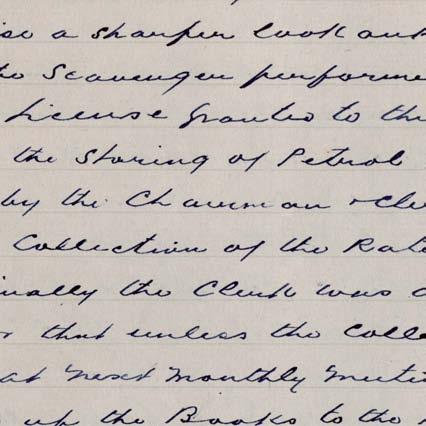 so a sharper look out
Scavenger perform
License Granted to th
the Storing of Petrol
by the Chairman & Cle
Collection of the Rat
nally the Clerk was
that unless the Colle
at next Monthly Meeti
up the Books to the